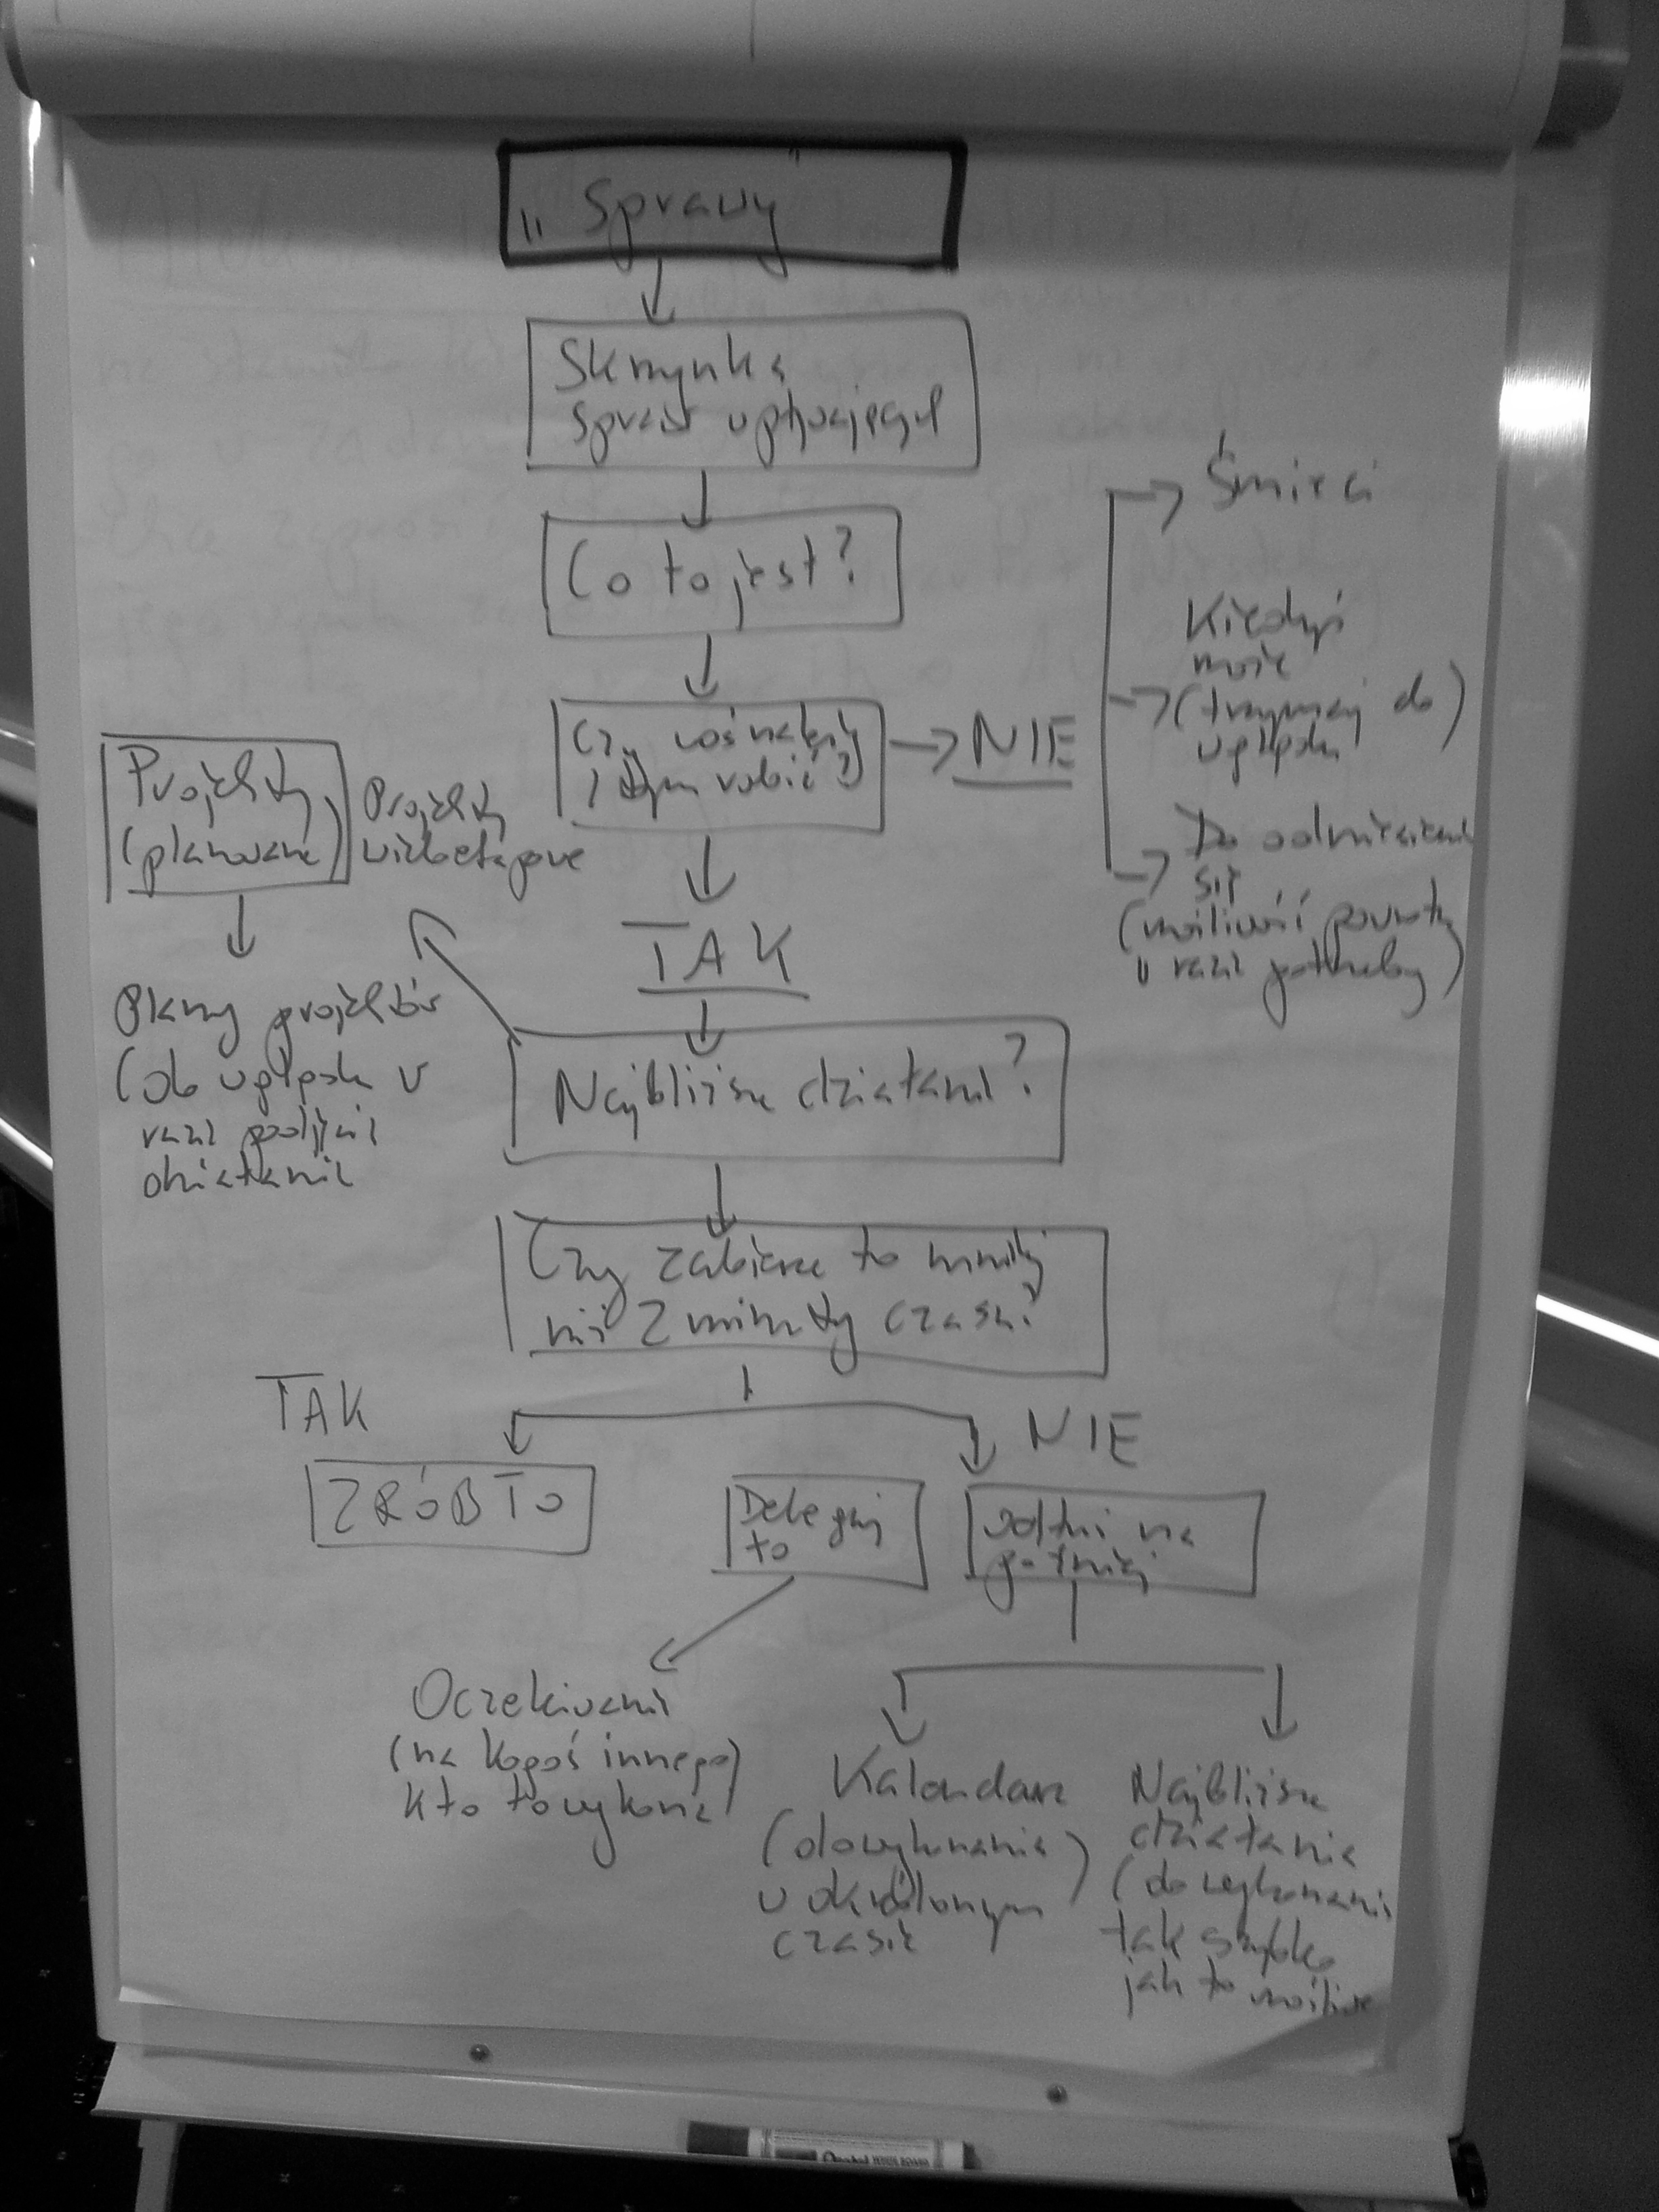 „Sprawy"
Skrzynka
spraw wpływających
Co to jest?
Czy coś należy
z tym robić?
NIE
Śmieci
Kiedyś
może
(trzymaj do)
wglądu
Do odniesienia
się
(możliwość powrotu
w razie potrzeby)
Projekty
(planowane)
Projekty
wieloetapowe
Plany projektów
(do wglądu w
razie podjęcia
działania
TAK
Najbliższe działanie?
Czy zabierze to mniej
niż 2 minuty czasu?
TAK
NIE
ZRÓB TO
Deleguj
to
odłóż na
później
Oczekiwanie
(na kogoś innego)
kto to wykona
Kalendarz
(do wykonania)
w określonym
czasie
Najbliższe
działania
(do wykonania
tak szybko
jak to możliwe